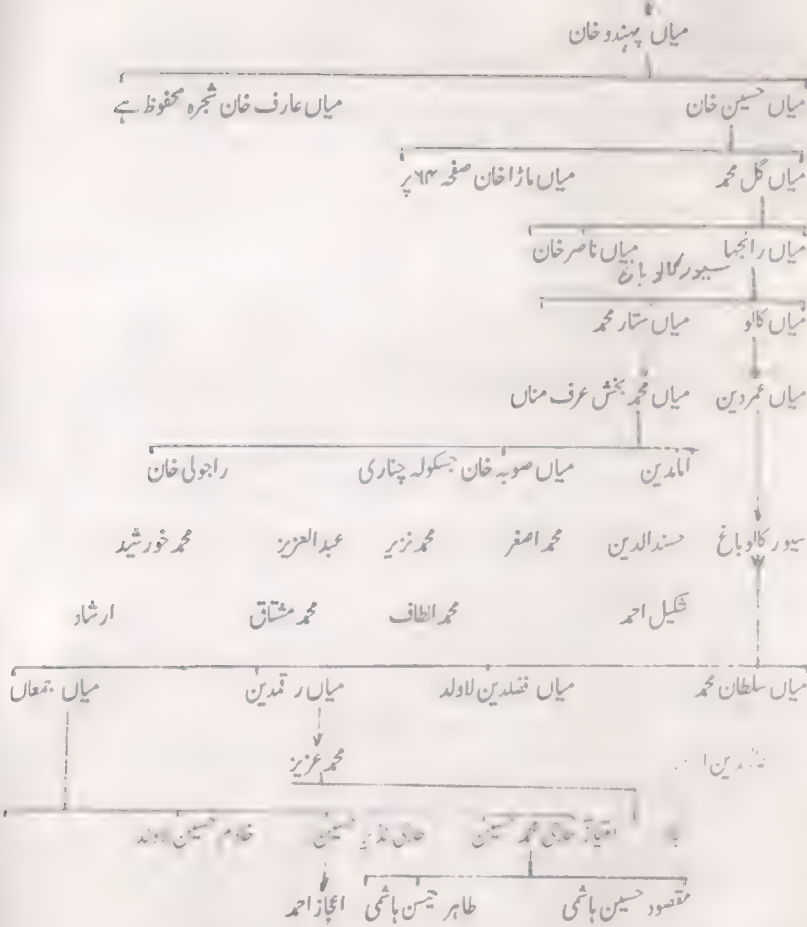 میاں پہندو خان
میاں حسین خان میاں عارف خان شجرہ محفوظ ہے
میاں گل محمد میاں ماڑا خان صفحہ ۶۴ پر
میاں رانجھا میاں ناصر خان
سیور کالو باغ
میاں کالو میاں ستار محمد
میاں عمر دین میاں محمد بخش عرف مناں
امامدین میاں صوبہ خان جسکولہ چناری راجولی خان
سیور کالو باغ حسند الدین محمد اصغر محمد نزیر عبدالعزیز محمد خورشید
شکیل احمد محمد الطاف محمد مشتاق ارشاد
میاں سلطان محمد میاں فضلدین لاولد میاں رقمدین میاں جمعاں
محمد عزیز
امتیاز حاجی محمد حسین حاجی نذیر حسین غلام حسین
مقصود حسین ہاشمی طاہر حسن ہاشمی اعجاز احمد